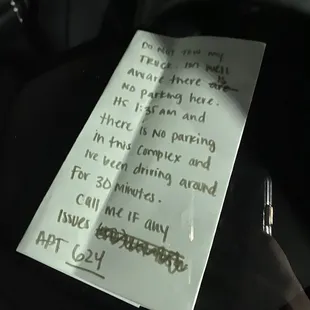 DO NOT TOW MY
TRUCK. IM WELL
AWARE there is
NO PARKING here.
ITS 1:35AM and
there is NO parking
in this complex and
I've been driving around
For 30 minutes.
CALL ME IF ANY
ISSUES
APT 624